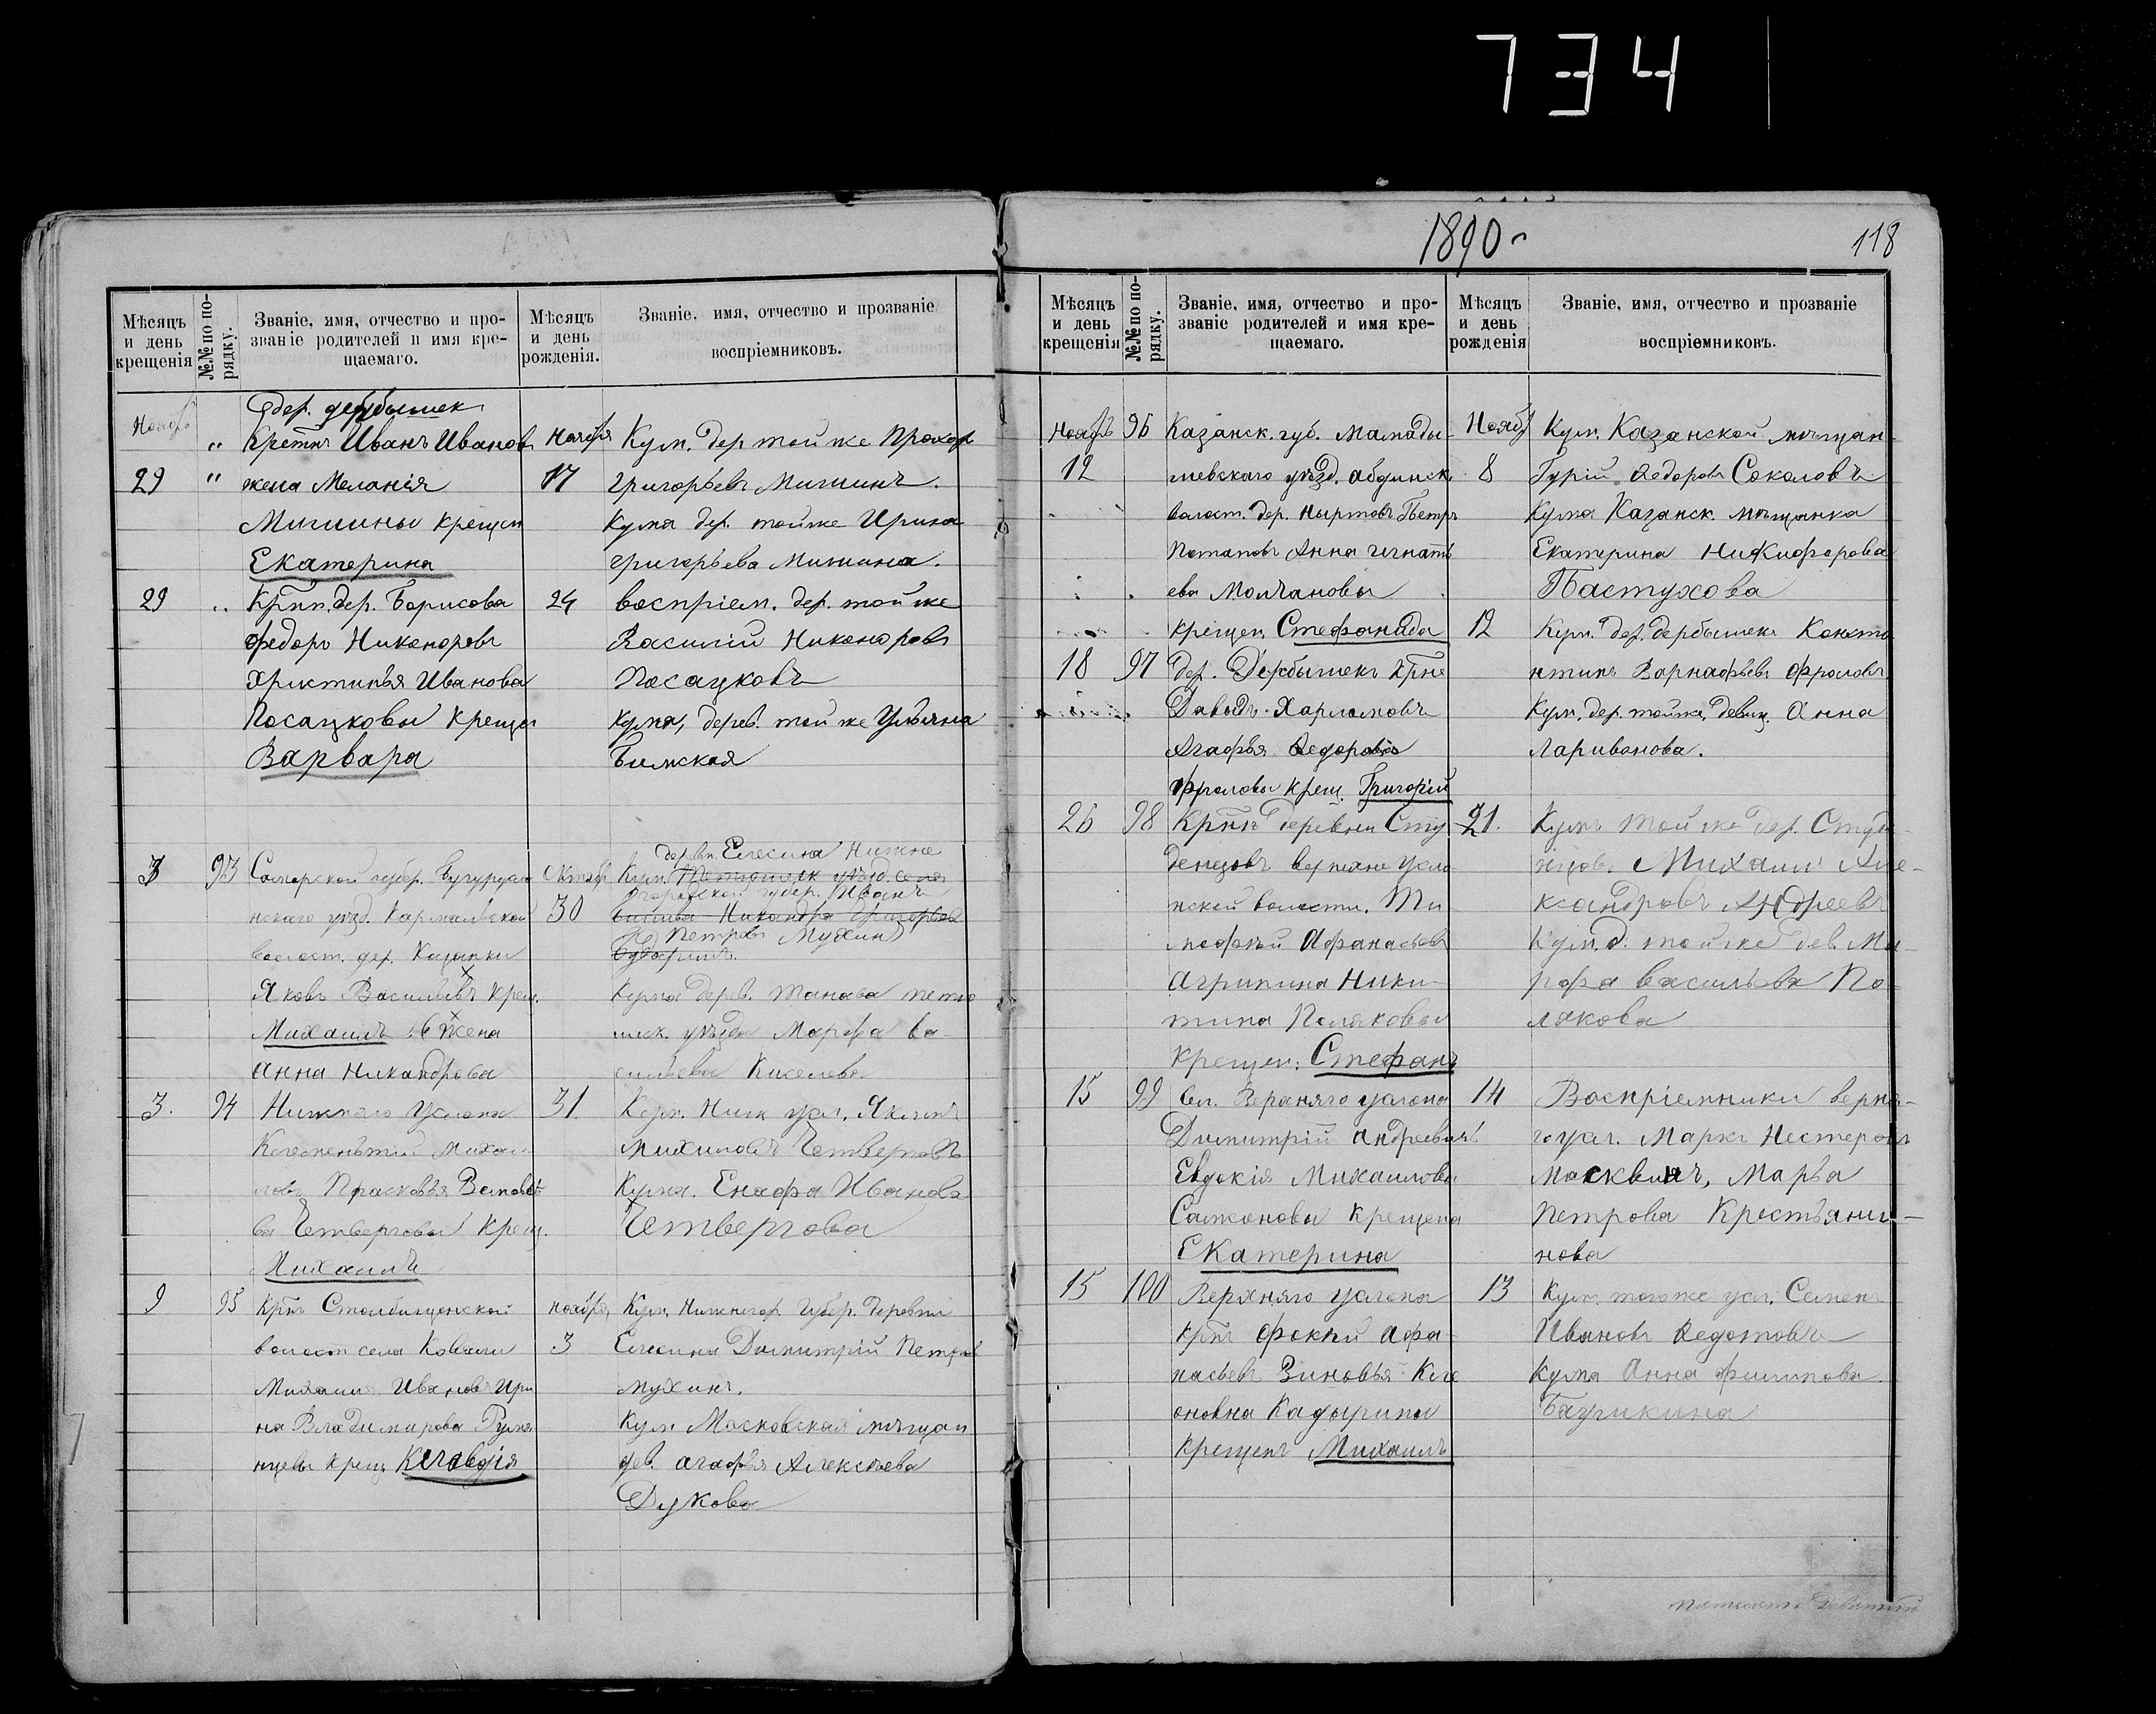 734
1890
118
Мѣсяцъ и день крещенія
№№ по порядку.
Званіе, имя, отчество и прозваніе родителей и имя крещаемаго.
Мѣсяцъ и день рожденія.
Званіе, имя, отчество и прозваніе воспріемниковъ.
дер. дербышек
Ноябр „ Иванъ Иванов
29 „ жена Меланія
Мишины крещен
Екатерина
Ноября
17
Кум. дер тойже Прохор
григорьевъ Мишинъ.
кума дер. тойже Ирина
григорьева Мишина.
29 „ дер. Борисова
федоръ Никоноровъ
христинья Иванова
Посацковы крещен
Варвара
24
воспріем. дер. тойже
Василій Никоноровъ
Посацковъ
кума, дерев. тойже Ульяна
Бимская
3 93 Самарской губер. Бугурусла
нскаго уѣзд. Кармалинской
волост. дер. Казанки
Яковъ Васильевъ крещ.
Михаилъ и жена
Анна Никандрова
Октяб
30
деревн. Елесина Ниже
городской губер. Иванъ
Никандра Григорьев
Петровъ Мухин
кума дерев. Танаева
уѣзда Марфа Ва
сильева Киселева
3. 94 Нижняго Услона
Михаи
ловъ Прасковья
ва Четвергова Крещ.
Михаилъ
31
Кум. Ниж усл.
Четверговъ
Кума. Ивановa
Четвергова
9 95 Столбищенской
волост села Ковали
Михаилъ Ивановъ Ири
на Владимирова Румя
нцевы крещ. Клавдія
ноября
3
Кум. Нижегор. Губер. деревни
Елесина Димитрій Петров
мухинъ.
Кум Московская мѣщан
дев. агафья Алексѣева
Дукова
Мѣсяцъ и день крещенія
№№ по порядку.
Званіе, имя, отчество и прозваніе родителей и имя крещаемаго.
Мѣсяцъ и день рожденія
Званіе, имя, отчество и прозваніе воспріемниковъ.
Ноябрь 96 Казанск. губ. Мамады
12 шевскаго уѣзд. абдинск
волост. дер. Ныртовъ Петръ
Потаповъ Анна игнать
ева Молчановы
крещен. Стефанида
Нояб
8
Кум. Казанской мѣщан
Гурій Ѳедоровъ Соколовъ
кума Казанск. мѣщанка
Екатерина Никифорова
Пастухова
18 97 дер. Дербышекъ
Давыдъ Харламовъ
Агафья Ѳедорова
Фроловы крещ. Григорій
12
Кум. дер. дербышекъ Конста
нтинъ Фроловъ
Кум. дер. тойже, девиц. Анна
Ларивонова.
26 98 деревни Сту
денцовъ верхне усло
нской волости. Ти
мофѣй Афанасьевъ
Агрипина Ники
тина Поляковы
крещен: Стефанъ
21.
Кумъ той же дер. Студе
нцовъ Михаилъ Але-
ксандровъ Андреевъ
Кум. д. той же дев. Ма-
рфа васильева По
лякова
15 99 Верхняго услона
Димитрій андреевичъ
Евдокія Михаилова
Сажоновы крещена
Екатерина
14
Воспріемники верхня-
го усл. Маркъ Нестеровъ
Москвинъ, Марья
Петрова Крестьяни-
нова
15 100 Верхняго услона
Афа
насьевъ Зиновья
оновна Кадырины
крещенъ Михаилъ
13
Кум. тогоже усл. Семенъ
Ивановъ Ѳедотовъ
кума Анна филипова